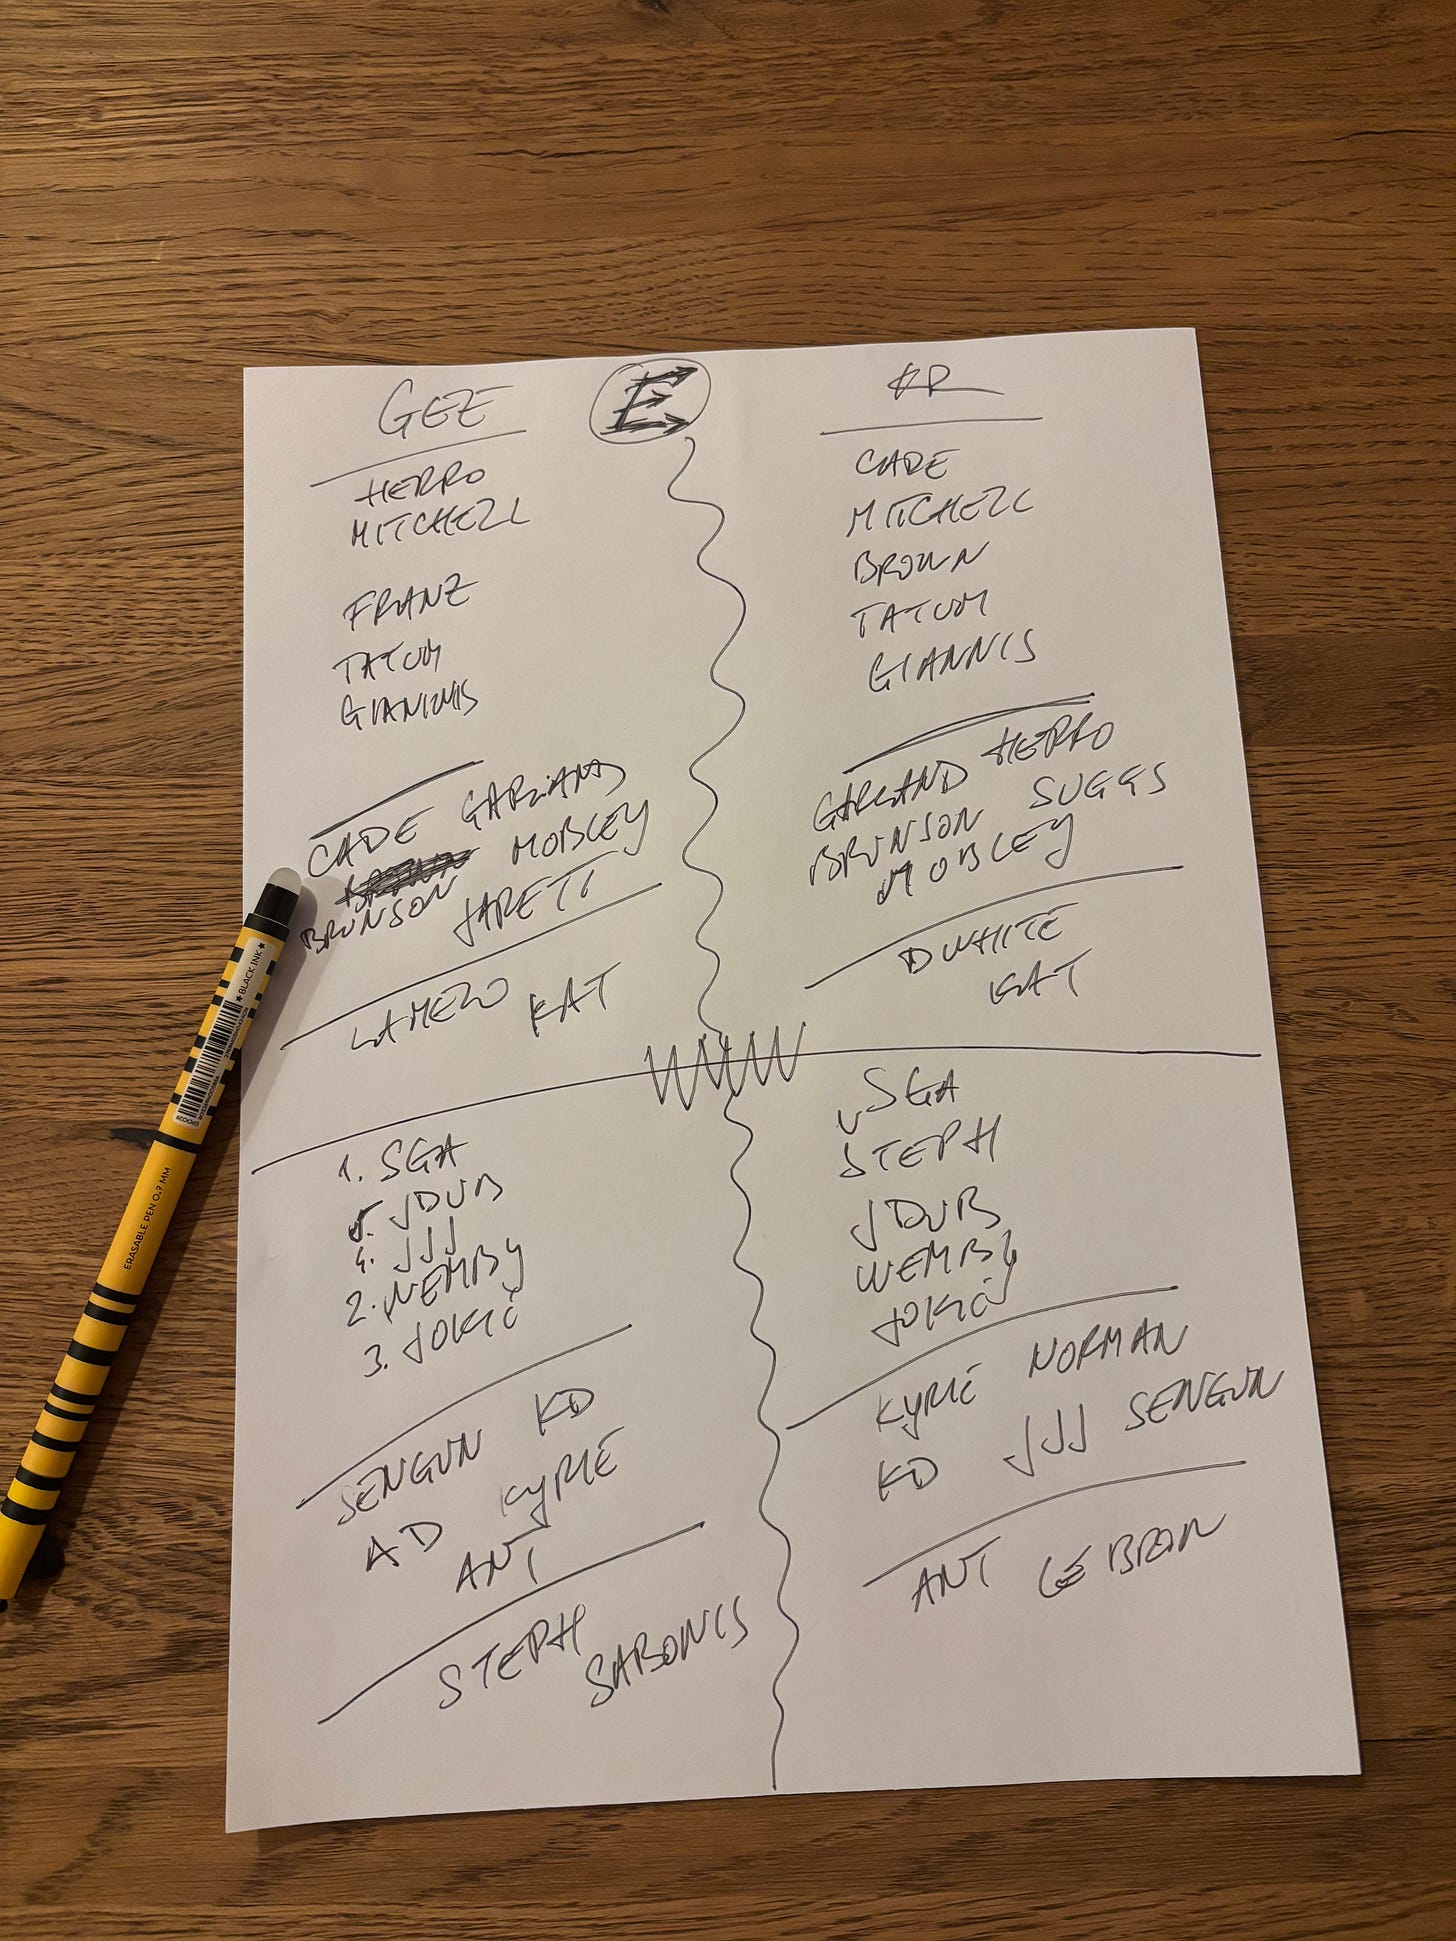 GEZE
HERRO
MITCHELL
FRANZ
TATUM
GIANNIS
CADE GARLAND
MOBLEY
BRUNSON JARETT
LAMELO KAT
E
CADE
MITCHELL
BROWN
TATUM
GIANNIS
GARLAND HERRO
BRUNSON SUGGS
MOBLEY
D WHITE
KAT
WWW
1. SGA
5. JDUB
4. JJJ
2. WEMBY
3. JOKIĆ
SENGUN KD
AD KYRIE
ANT
STEPH
SABONIS
SGA
STEPH
JDUB
WEMBY
JOKIĆ
KYRIE NORMAN
KD JJJ SENGUN
ANT LEBRON
ERASABLE PEN 0.7 MM
★ BLACK INK ★